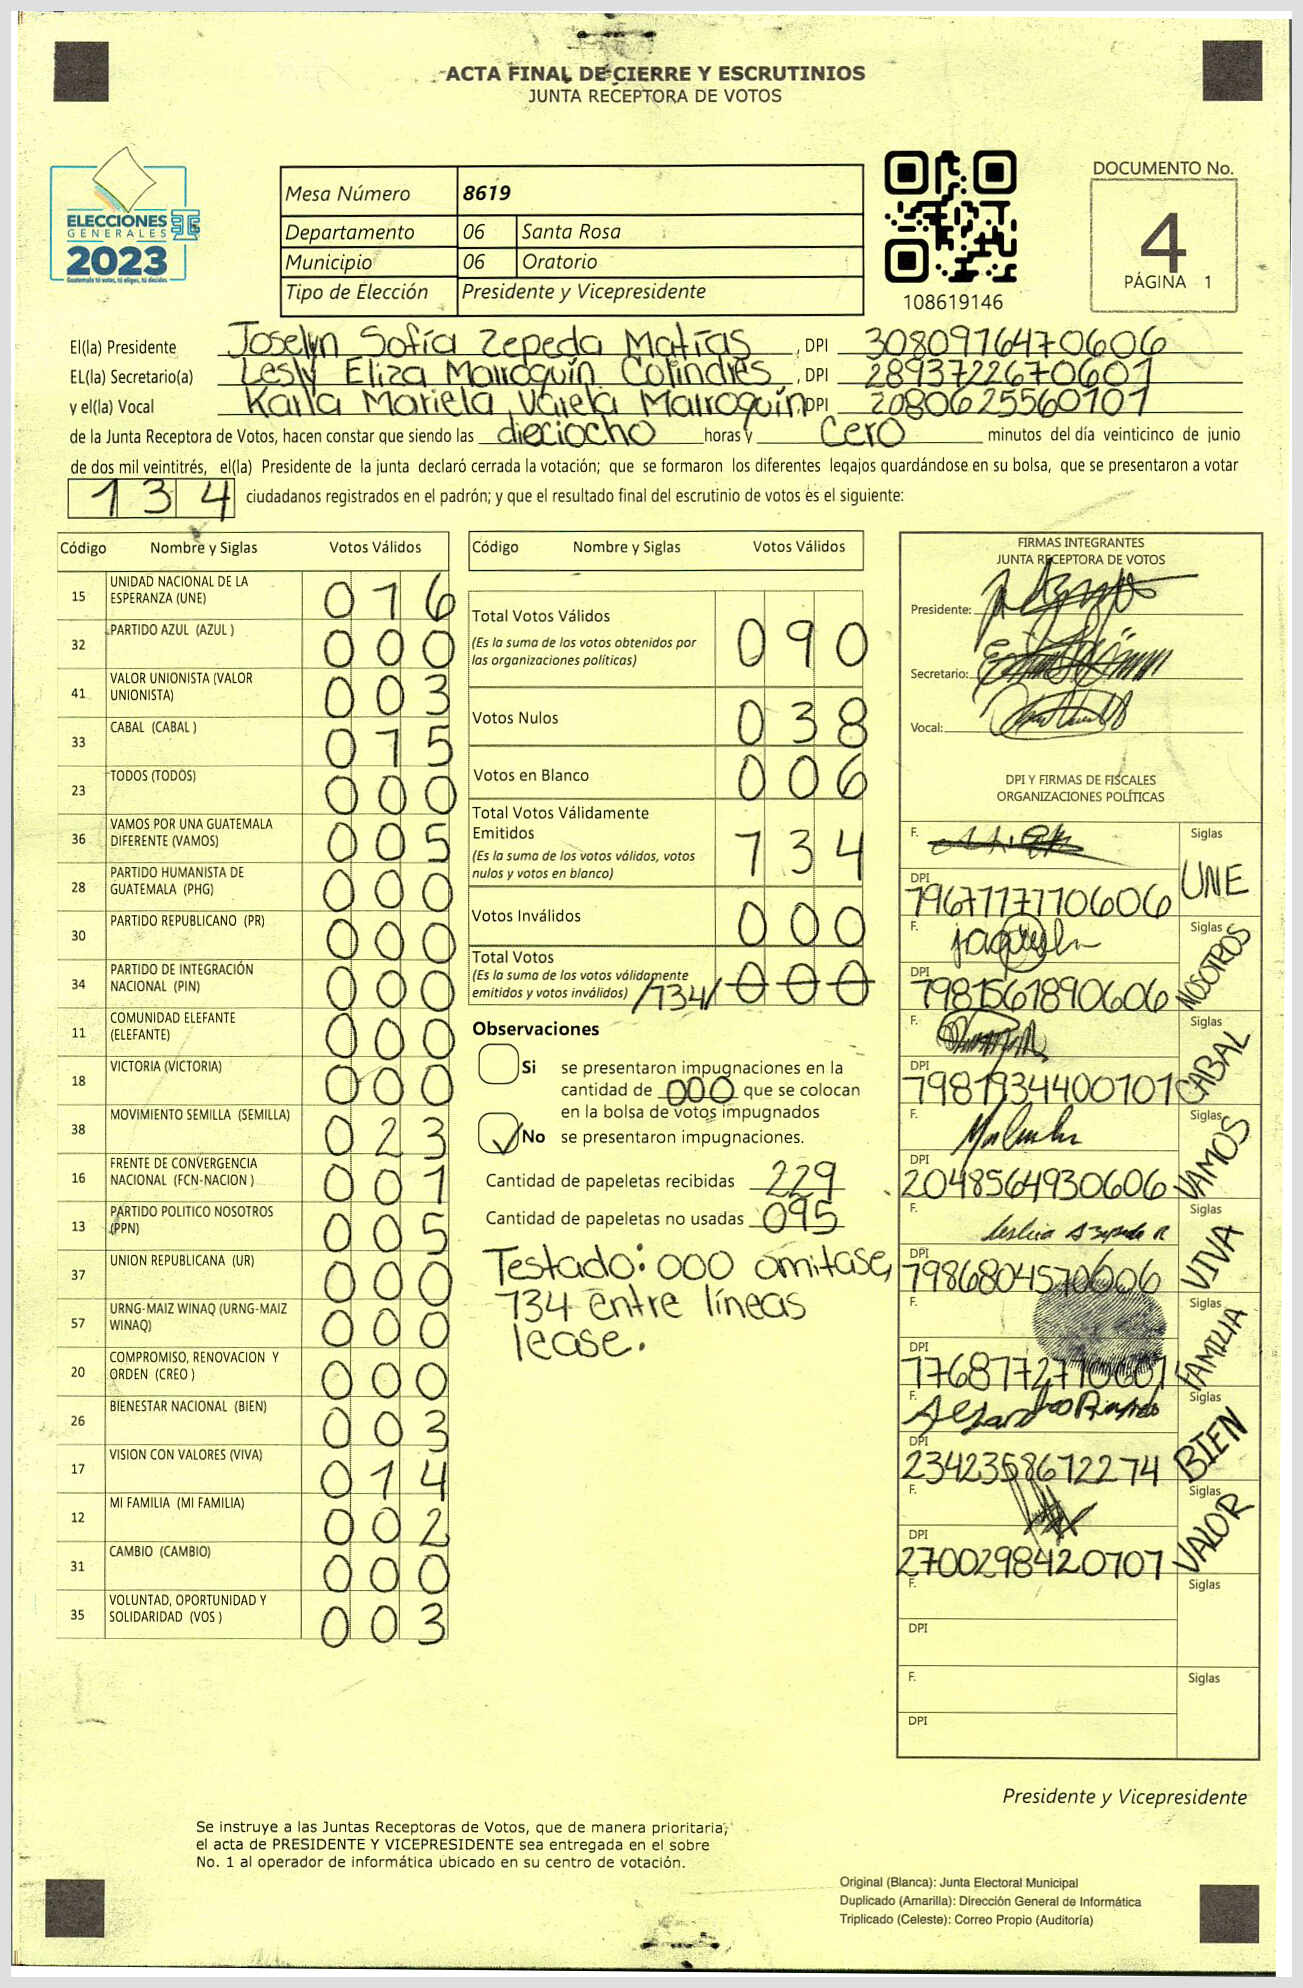 ACTA FINAL DE CIERRE Y ESCRUTINIOS
JUNTA RECEPTORA DE VOTOS
ELECCIONES
GENERALES
2023
Guatemala tú votas, tú eliges, tú decides
Mesa Número 8619
Departamento 06 Santa Rosa
Municipio 06 Oratorio
Tipo de Elección Presidente y Vicepresidente
108619146
DOCUMENTO No.
4
PÁGINA 1
El(la) Presidente Joselyn Sofía Zepeda Matías, DPI 3080976470606
EL(la) Secretario(a) Lesly Eliza Marroquín Colindres, DPI 2893722670601
y el(la) Vocal Karla Mariela Varela Marroquín, DPI 2080625560101
de la Junta Receptora de Votos, hacen constar que siendo las dieciocho horas y cero minutos del día veinticinco de junio
de dos mil veintitrés, el(la) Presidente de la junta declaró cerrada la votación; que se formaron los diferentes legajos guardándose en su bolsa, que se presentaron a votar
134 ciudadanos registrados en el padrón; y que el resultado final del escrutinio de votos es el siguiente:
Código Nombre y Siglas Votos Válidos
15 UNIDAD NACIONAL DE LA ESPERANZA (UNE) 016
32 PARTIDO AZUL (AZUL ) 000
41 VALOR UNIONISTA (VALOR UNIONISTA) 003
33 CABAL (CABAL ) 015
23 TODOS (TODOS) 000
36 VAMOS POR UNA GUATEMALA DIFERENTE (VAMOS) 005
28 PARTIDO HUMANISTA DE GUATEMALA (PHG) 000
30 PARTIDO REPUBLICANO (PR) 000
34 PARTIDO DE INTEGRACIÓN NACIONAL (PIN) 000
11 COMUNIDAD ELEFANTE (ELEFANTE) 000
18 VICTORIA (VICTORIA) 000
38 MOVIMIENTO SEMILLA (SEMILLA) 023
16 FRENTE DE CONVERGENCIA NACIONAL (FCN-NACION ) 001
13 PARTIDO POLITICO NOSOTROS (PPN) 005
37 UNION REPUBLICANA (UR) 000
57 URNG-MAIZ WINAQ (URNG-MAIZ WINAQ) 000
20 COMPROMISO, RENOVACION Y ORDEN (CREO ) 000
26 BIENESTAR NACIONAL (BIEN) 003
17 VISION CON VALORES (VIVA) 014
12 MI FAMILIA (MI FAMILIA) 002
31 CAMBIO (CAMBIO) 000
35 VOLUNTAD, OPORTUNIDAD Y SOLIDARIDAD (VOS ) 003
Código Nombre y Siglas Votos Válidos
Total Votos Válidos 090
(Es la suma de los votos obtenidos por
las organizaciones políticas)
Votos Nulos 038
Votos en Blanco 006
Total Votos Válidamente
Emitidos 134
(Es la suma de los votos válidos, votos
nulos y votos en blanco)
Votos Inválidos 000
Total Votos
(Es la suma de los votos válidamente
emitidos y votos inválidos) /134/ 000
Observaciones
Si se presentaron impugnaciones en la
cantidad de 000 que se colocan
en la bolsa de votos impugnados
No se presentaron impugnaciones.
Cantidad de papeletas recibidas 229
Cantidad de papeletas no usadas 095
Testado: 000 omitase,
134 entre líneas
lease.
FIRMAS INTEGRANTES
JUNTA RECEPTORA DE VOTOS
Presidente:
Secretario:
Vocal:
DPI Y FIRMAS DE FISCALES
ORGANIZACIONES POLÍTICAS
F. Siglas
DPI 1967717770606 UNE
F. Siglas
DPI 1981561890606 NOSOTROS
F. Siglas
DPI 1981934400101 CABAL
F. Siglas
DPI 2048564930606 VAMOS
F. Siglas
DPI 1986804570606 VIVA
F. Siglas
DPI 1768772710601 FAMILIA
F. Siglas
DPI 2342358672274 BIEN
F. Siglas
DPI 2700298420707 VALOR
F. Siglas
DPI
F. Siglas
DPI
Presidente y Vicepresidente
Se instruye a las Juntas Receptoras de Votos, que de manera prioritaria,
el acta de PRESIDENTE Y VICEPRESIDENTE sea entregada en el sobre
No. 1 al operador de informática ubicado en su centro de votación.
Original (Blanca): Junta Electoral Municipal
Duplicado (Amarilla): Dirección General de Informática
Triplicado (Celeste): Correo Propio (Auditoría)